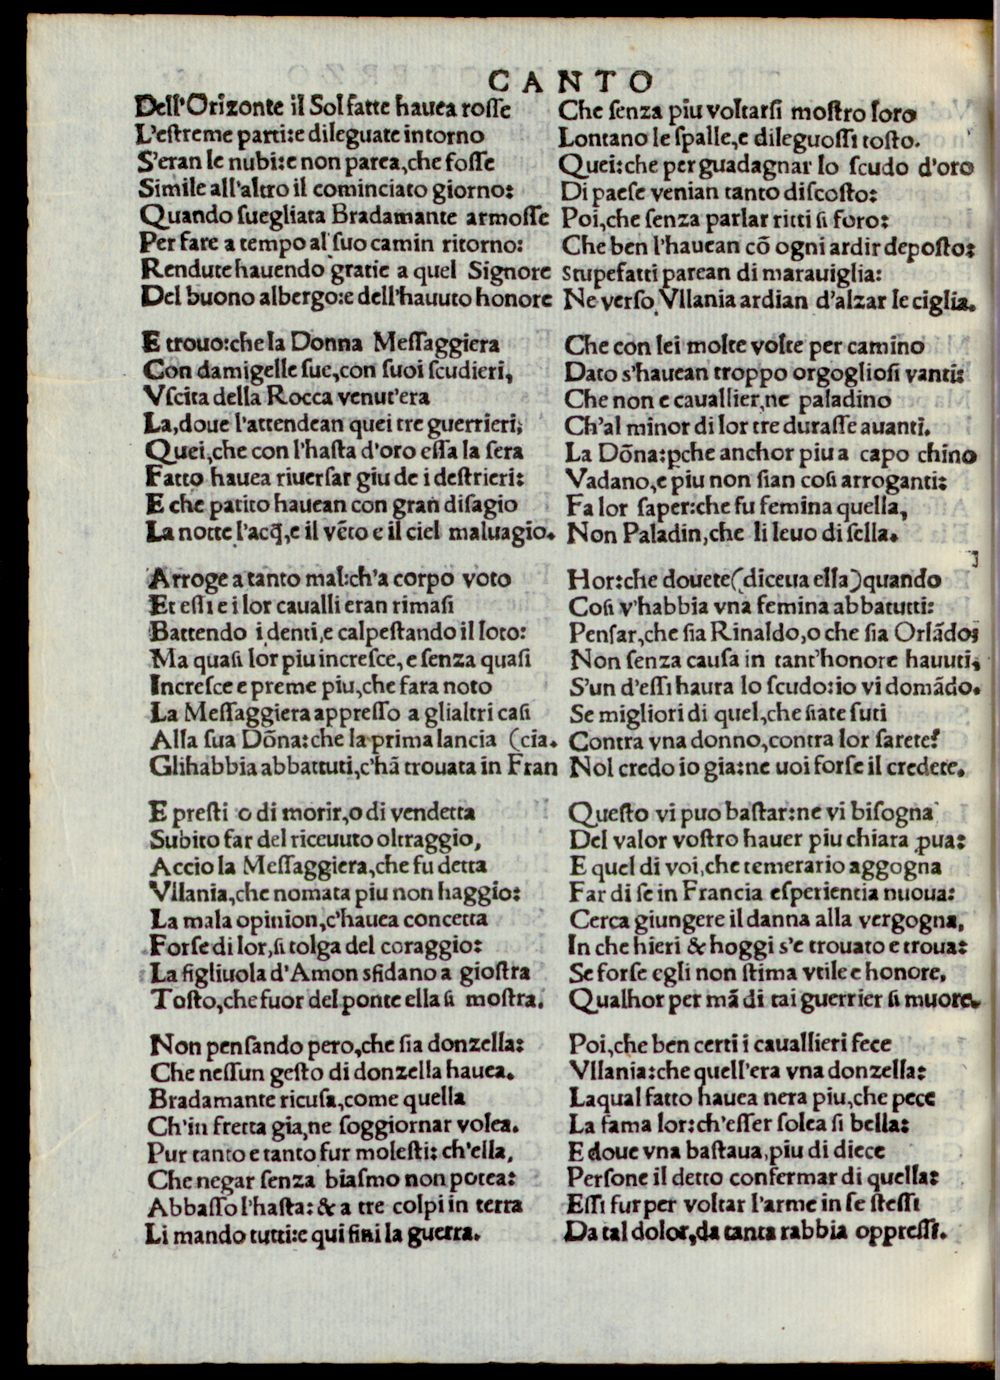 CANTO
Dell'Orizonte il Sol fatte hauea rosse
L'estreme parti:e dileguate intorno
S'eran le nubi:e non parea,che fosse
Simile all'altro il cominciato giorno:
Quando suegliata Bradamante armosse
Per fare a tempo al suo camin ritorno:
Rendute hauendo gratie a quel Signore
Del buono albergo:e dell'hauuto honore

E trouo:che la Donna Messaggiera
Con damigelle sue,con suoi scudieri,
Vscita della Rocca venut'era
La,doue l'attendean quei tre guerrieri;
Quei,che con l'hasta d'oro essa la sera
Fatto hauea riuersar giu de i destrieri:
E che patito hauean con gran disagio
La notte l'acq̃,e il vẽto e il ciel maluagio.

Arroge a tanto mal:ch'a corpo voto
Et essi e i lor caualli eran rimasi
Battendo i denti,e calpestando il loto:
Ma quasi lor piu incresce,e senza quasi
Incresce e preme piu,che fara noto
La Messaggiera appresso a glialtri casi
Alla sua Dõna:che la prima lancia (cia.
Glihabbia abbattuti,c'hã trouata in Fran

E presti o di morir,o di vendetta
Subito far del riceuuto oltraggio,
Accio la Messaggiera,che fu detta
Vllania,che nomata piu non haggio:
La mala opinion,c'hauea concetta
Forse di lor,si tolga del coraggio:
La figliuola d'Amon sfidano a giostra
Tosto,che fuor del ponte ella si mostra.

Non pensando pero,che sia donzella:
Che nessun gesto di donzella hauea.
Bradamante ricusa,come quella
Ch'in fretta gia,ne soggiornar volea.
Pur tanto e tanto fur molesti: ch'ella,
Che negar senza biasmo non potea:
Abbasso l'hasta:& a tre colpi in terra
Li mando tutti:e qui fini la guerra.

Che senza piu voltarsi mostro loro
Lontano le spalle,e dileguossi tosto.
Quei:che per guadagnar lo scudo d'oro
Di paese venian tanto discosto:
Poi,che senza parlar ritti si foro:
Che ben l'hauean cõ ogni ardir deposto:
Stupefatti parean di marauiglia:
Ne verso Vllania ardian d'alzar le ciglia.

Che con lei molte volte per camino
Dato s'hauean troppo orgogliosi vanti:
Che non e cauallier,ne paladino
Ch'al minor di lor tre durasse auanti.
La Dõna:ꝑche anchor piu a capo chino
Vadano,e piu non sian cosi arroganti:
Fa lor saper:che fu femina quella,
Non Paladin,che li leuo di sella.

Hor:che douete(diceua ella)quando
Cosi v'habbia vna femina abbatutti:
Pensar,che sia Rinaldo,o che sia Orlãdo;
Non senza causa in tant'honore hauuti;
S'un d'essi haura lo scudo:io vi domãdo.
Se migliori di quel,che siate futi
Contra vna donno,contra lor sarete?
Nol credo io gia:ne uoi forse il credete.

Questo vi puo bastar:ne vi bisogna
Del valor vostro hauer piu chiara ꝓua:
E quel di voi,che temerario aggogna
Far di se in Francia esperientia nuoua:
Cerca giungere il danna alla vergogna,
In che hieri & hoggi s'e trouato e troua:
Se forse egli non stima vtile e honore,
Qualhor per mã di tai guerrier si muore.

Poi,che ben certi i cauallieri fece
Vllania:che quell'era vna donzella:
Laqual fatto hauea nera piu,che pece
La fama lor:ch'esser solea si bella:
E doue vna bastaua,piu di diece
Persone il detto confermar di quella:
Essi fur per voltar l'arme in se stessi
Da tal dolor,da tanta rabbia oppressi.